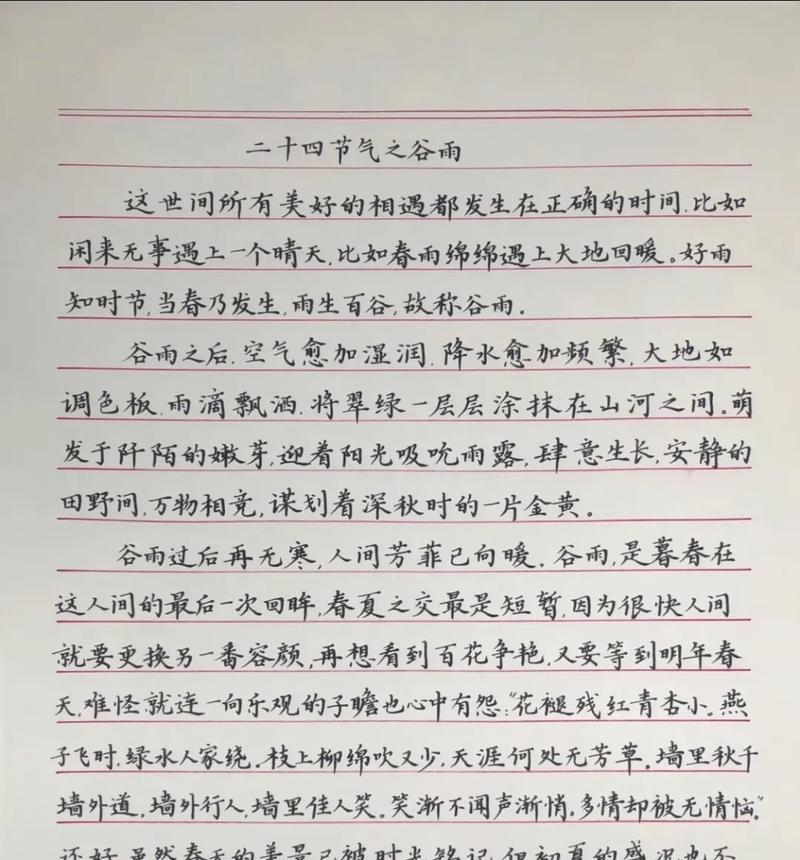 二十四节气之谷雨
这世间所有美好的相遇都发生在正确的时间.比如
闲来无事遇上一个晴天,比如春雨绵绵遇上大地回暖。好雨
知时节,当春乃发生,雨生百谷,故称谷雨.
谷雨之后.空气愈加湿润.降水愈加频繁,大地如
调色板.雨滴飘洒.将翠绿一层层涂抹在山河之间。萌
发于阡陌的嫩芽,迎着阳光吸吮雨露,肆意生长,安静的
田野间,万物相竞,谋划着深秋时的一片金黄。
谷雨过后再无寒,人间芳菲已向暖.谷雨,是暮春在
这人间的最后一次回眸,春夏之交最是短暂,因为很快人间
就要更换另一番容颜,再想看到百花争艳,又要等到明年春
天,难怪就连一向乐观的子瞻也心中有怨:“花褪残红青杏小。燕
子飞时,绿水人家绕。枝上柳绵吹又少,天涯何处无芳草。墙里秋千
墙外道,墙外行人,墙里佳人笑。笑渐不闻声渐悄。多情却被无情恼。”
还好,虽然春天的美景已被时光铭记,但初夏的盛况也不